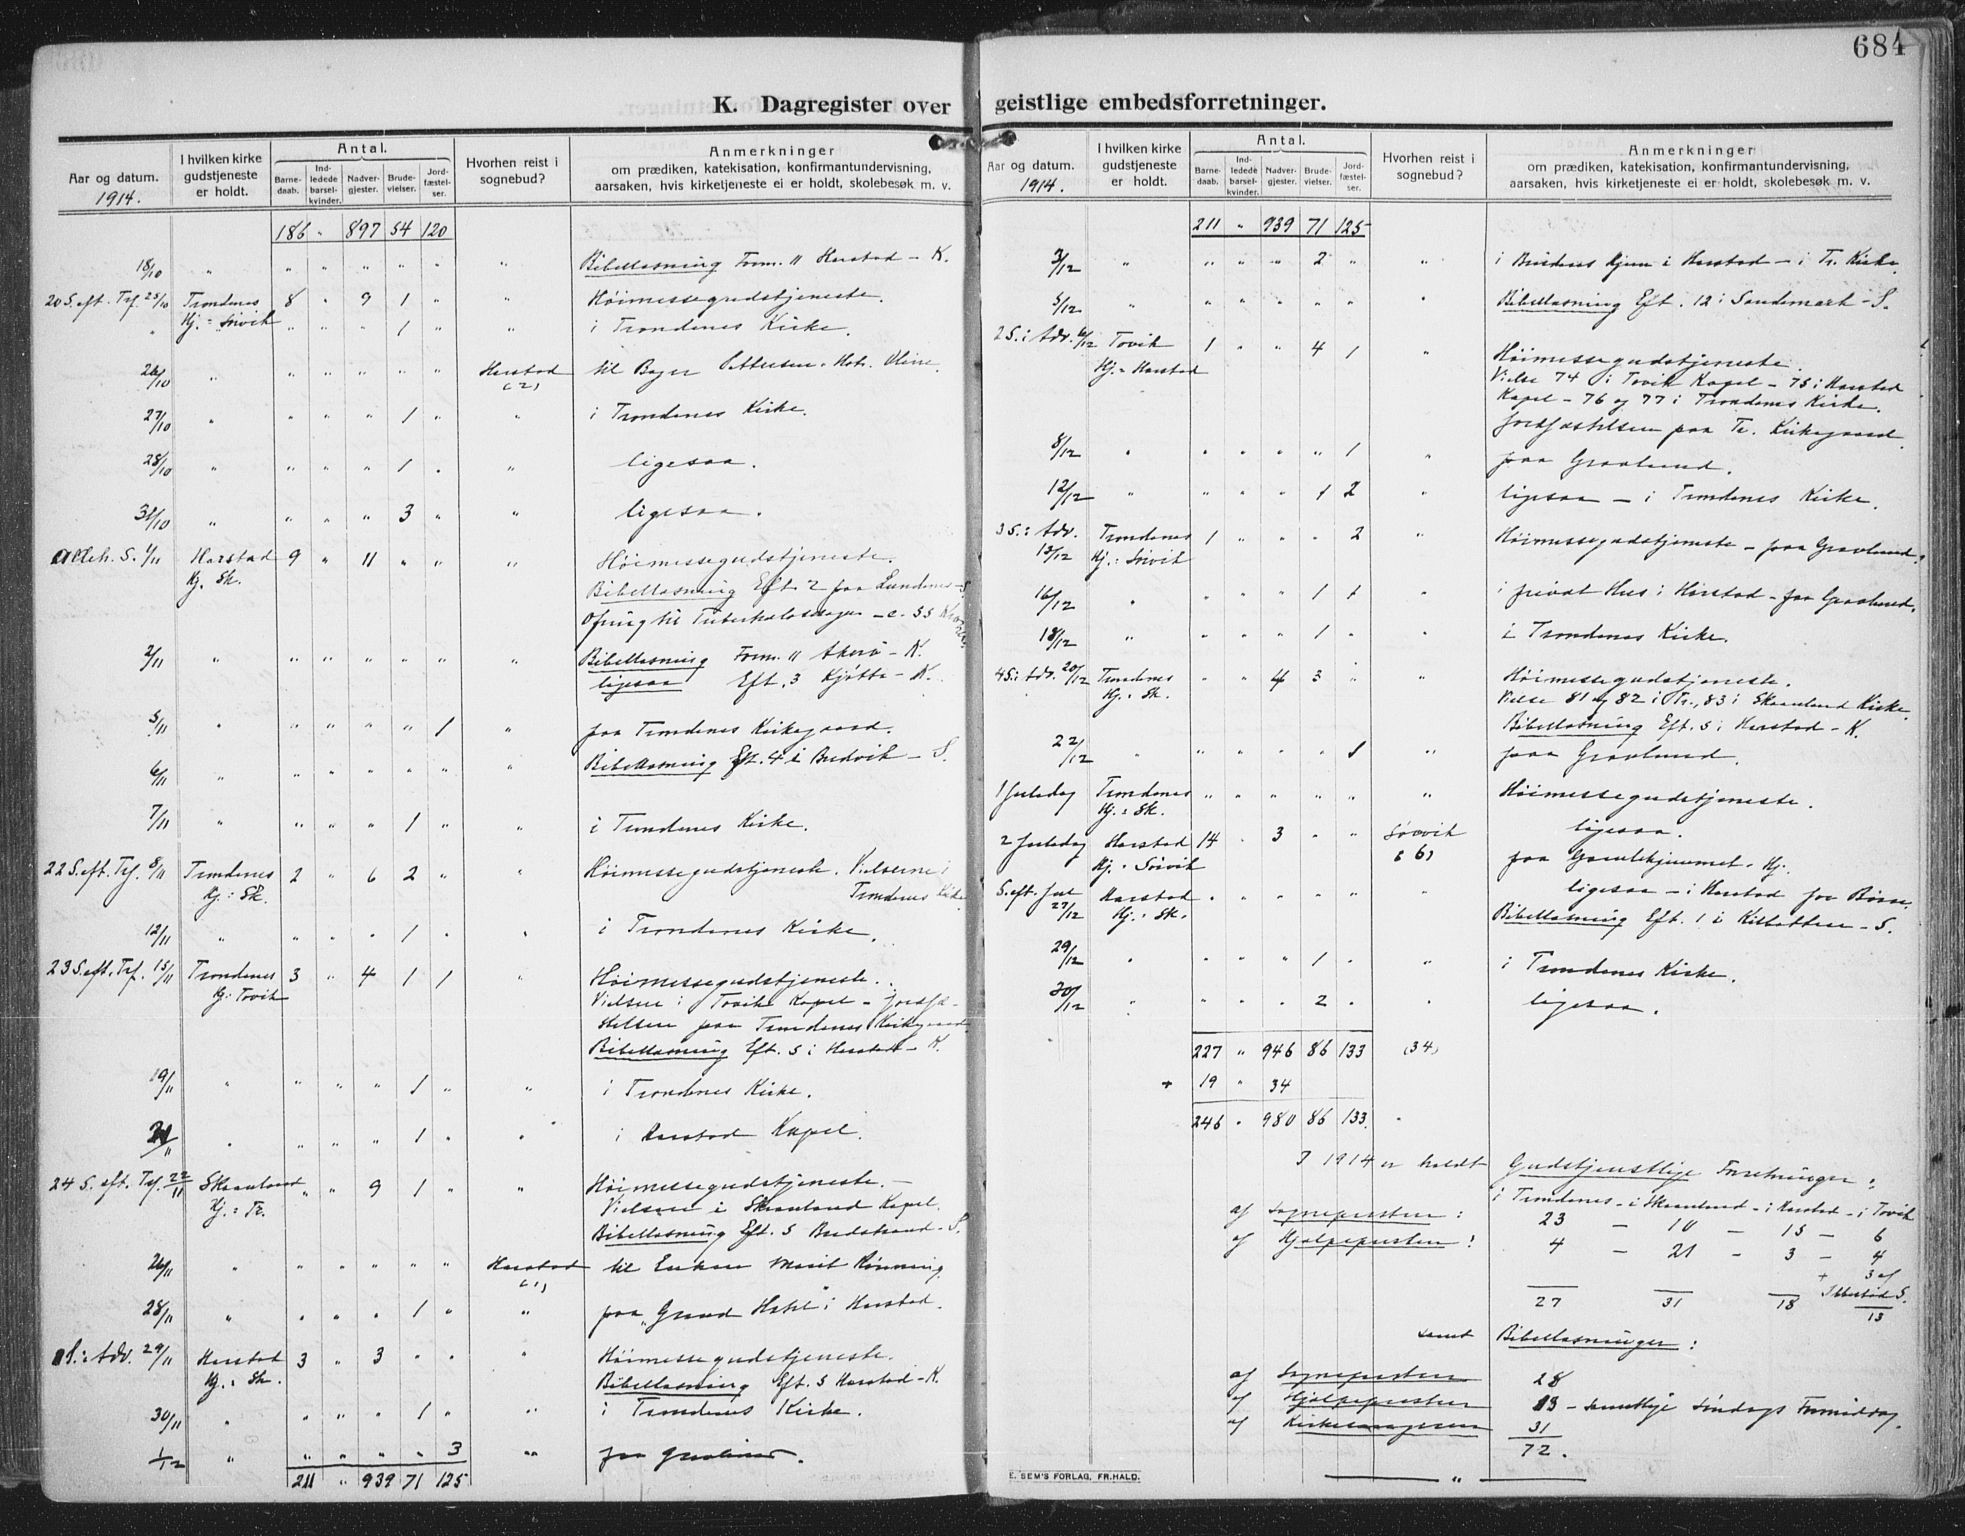 684
K. Dagregister over geistlige embedsforretninger.
Aar og datum. 1914.
I hvilken kirke gudstjeneste er holdt.
Antal.
Barnedaab.
Indledede barselkvinder.
Nadvergjester.
Brudevielser.
Jordfæstelser.
Hvorhen reist i sognebud?
Anmerkninger
om prædiken, katekisation, konfirmantundervisning,
aarsaken, hvis kirketjeneste ei er holdt, skolebesøk m. v.
186 " 897 54 120
18/10 " " " " " " " Bibellæsning Form. 11 Harstad - K.
20 S. eft. Trf. 25/10 Trondenes 8 " 9 1 " " Høimessegudstjeneste.
" Hj. = Sørvik " " " 1 " " i Trondenes Kirke.
26/10 " " " " " " Harstad (2) til Bager Pettersen
27/10 " " " " 1 " " i Trondenes Kirke.
28/10 " " " " 1 " " ligesaa.
31/10 " " " " 3 " " ligesaa.
Alleh. S. 1/11 Harstad 9 " 11 " " " Høimessegudstjeneste.
Hj. Sk. Bibellæsning Eft. 2 paa Lundenes - S.
Ofring til Tuberkulosesagen - c. 55 Kroner
2/11 " " " " " " " Bibellæsning Form. 11 Akerø - K.
ligesaa Eft. 3 Kjøtta - K.
5/11 " " " " " 1 " paa Trondenes Kirkegaard.
6/11 " " " " " " " Bibellæsning Eft. 4 i Bredvik - S.
7/11 " " " " 1 " " i Trondenes Kirke.
22 S. eft. Trf. 8/11 Trondenes 2 " 6 2 " " Høimessegudstjeneste. Vielserne i
Hj. : Sk. Trondenes Kirke
12/11 " " " " 1 " " i Trondenes Kirke.
23 S. eft. Trf. 15/11 Trondenes 3 " 4 1 1 Høimessegudstjeneste.
Hj: Tovik Vielsen i Tovik Kapel - Jordfæ-
stelsen paa Trondenes Kirkegaard
Bibellæsning Eft. 5 i Harstad - K.
19/11 " " " " 1 " " i Trondenes Kirke.
21/11 " " " " 1 " " i Harstad Kapel.
24 S. eft. Trf. 22/11 Skaanland " " 9 1 " " Høimessegudstjeneste. -
Hj. : Tr. Vielsen i Skaanland Kapel.
Bibellæsning Eft. 5 Bredstrand - S.
26/11 " " " " " " Harstad (1) til Enken Marit Rønning
28/11 " " " " 1 " " paa "Grand Hotel" i Harstad.
1 S. i Adv. 29/11 Harstad 3 " 3 " " " Høimessegudstjeneste.
Hj. : Sk. Bibellæsning Eft. 5 Harstad - K.
30/11 " " " " 1 " " i Trondenes Kirke.
1/12 " " " " " 3 " paa Gravlund.
211 " 939 71 125
Aar og datum. 1914.
I hvilken kirke gudstjeneste er holdt.
Antal.
Barnedaab.
Indledede barselkvinder.
Nadvergjester.
Brudevielser.
Jordfæstelser.
Hvorhen reist i sognebud?
Anmerkninger
om prædiken, katekisation, konfirmantundervisning,
aarsaken, hvis kirketjeneste ei er holdt, skolebesøk m. v.
211 " 939 71 125
3/12 " " " " 2 " " i Brudens Hjem i Harstad - i Tr. Kirke.
5/12 " " " " " " " Bibellæsning Eft. 12 i Sandemark - S.
2 S. i Adv. 6/12 Tovik 1 " " 4 1 " Høimessegudstjeneste.
Hj. = Harstad Vielse 74 i Tovik Kapel - 75 i Harstad
Kapel - 76 og 77 i Trondenes Kirke.
Jordfæstelsen paa Tr. Kirkegaard
8/12 " " " " " 1 " paa Gravlund.
12/12 " " " " 1 2 " ligesaa - i Trondenes Kirke.
3 S. i Adv. 13/12 Trondenes 1 " " " 2 " Høimessegudstjeneste - paa Gravlund.
Hj. : Sørvik
16/12 " " " " 1 1 " i privat Hus i Harstad - paa Gravlund.
18/12 " " " " 1 " " i Trondenes Kirke.
4 S. i Adv. 20/12 Trondenes " " 4 3 " " Høimessegudstjeneste.
Hj. : Sk. Vielse 81 og 82 i Tr., 83 i Skaanland Kirke.
Bibellæsning Eft. 5 i Harstad - K.
22/12 " " " " " 1 " paa Gravlund.
1 Juledag Trondenes " " " " " " Høimessegudstjeneste.
Hj. : Sk.
2 Juledag Harstad 14 " 3 " " Sørvik (6) ligesaa.
Hj. : Sørvik paa Gamlehjemmet. Hj.
S. eft. Jul 27/12 Harstad " " " " " " ligesaa - i Harstad for Børn.
Hj. : Sk. Bibellæsning Eft. 1 i Kilbotten - S.
29/12 " " " " 1 " " i Trondenes Kirke.
30/12 " " " " 2 " " ligesaa.
227 " 946 86 133 (34)
+ 19 " 34
246 " 980 86 133 "
I 1914 er holdt Gudstjenstlige Forretninger :
i Trondenes - i Skaanland - i Harstad - i Tovik
af Sognepresten : 23 - 10 - 15 - 6
af Hjælpepresten : 4 - 21 - 3 - 4
+ 3 af
Ibbestad S.
27 31 18 13
samt Bibellæsninger :
af Sognepresten 28
af Hjælpepresten 13 - samtlige Søndags Formiddag.
af Kirkesangeren 31
72.
E. SEM'S FORLAG, FR.HALD.